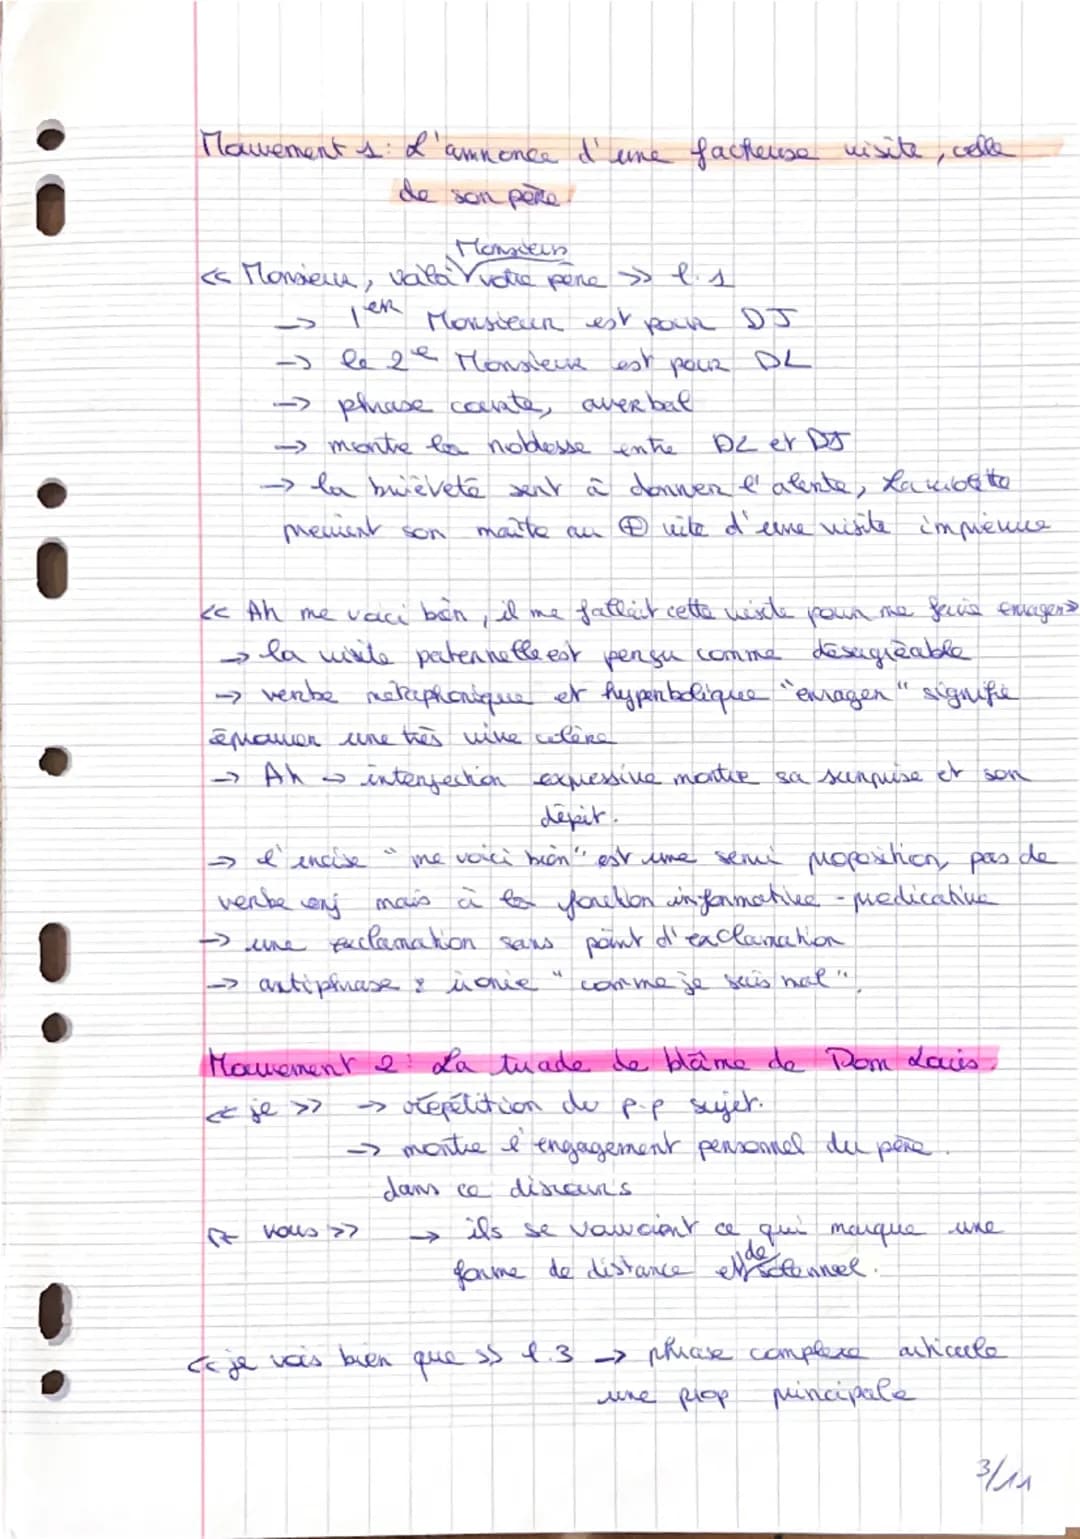 Mouvement 1: L'annonce d'une facheuse visite, celle
de son père.
Monsieur
<< Monsieur, voilà votre père >> l.1
→ 1er Monsieur est pour DJ
→ le 2e Monsieur est pour DL
→ phrase courte, averbal
→ montre la noblesse entre DL et DJ
→ la brièveté sert à donner l'alerte, La violette
prévient son maître au ⊕ vite d'une visite imprévue
<< Ah me voici bien, il me fallait cette visite pour me faire enrager>>
→ la visite paternelle est perçu comme désagréable
→ verbe métaphorique et hyperbolique "enrager" signifie
éprouver une très vive colère
→ Ah → interjection expressive montre sa surprise et son
dépit.
→ l'incise "me voici bien" est une semi proposition, pas de
verbe conj mais à la fonction informative - prédicative
→ une exclamation sans point d'exclamation
→ antiphrase : ironie "comme je suis mal".
Mouvement 2: La tirade de blâme de Dom Louis.
<< je >> → répétition du p.p sujet.
→ montre l'engagement personnel du père.
dans ce discours
<< vous >> → ils se vouvoient ce qui marque une
de
forme de distance et solennel.
<< je vois bien que >> l.3 → phrase complexe articule
une prop principale
3/11